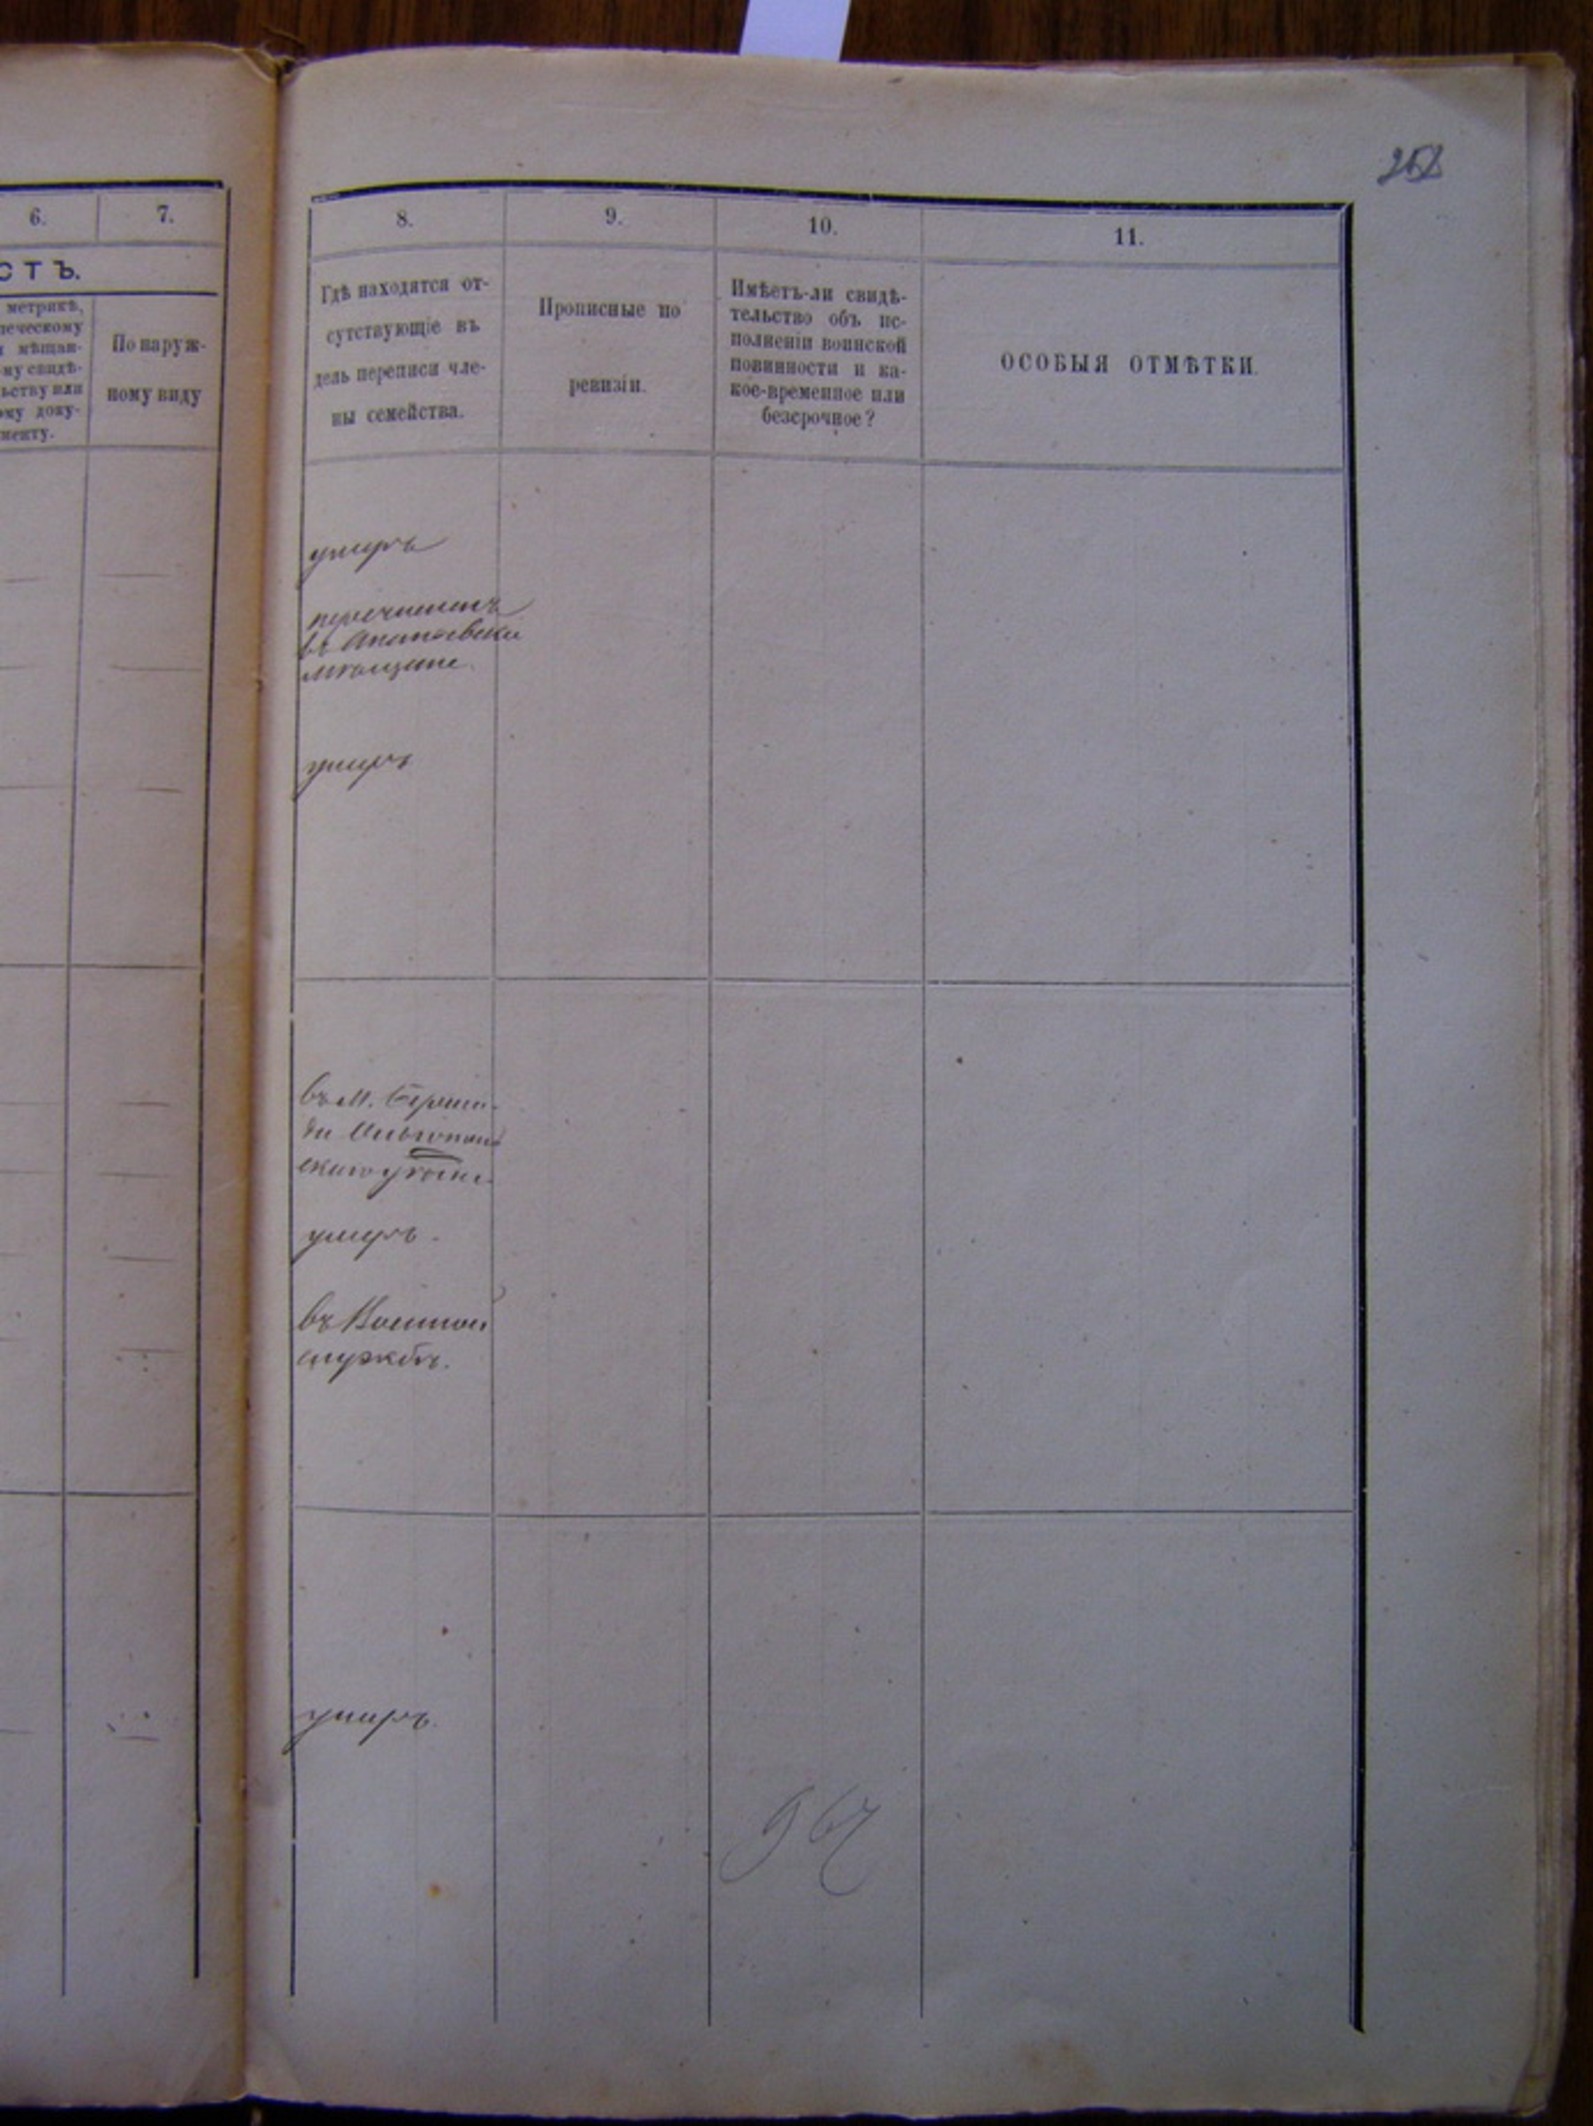 258
6.
7.
СТЪ.
метрикѣ,
По наруж-
ному виду
менту.
8.
9.
10.
11.
Гдѣ находятся от-
сутствующіе въ
дель переписи чле-
ны семейства.
Прописные по
ревизіи.
Имѣетъ-ли свидѣ-
тельство объ ис-
полненіи воинской
повинности и ка-
кое-временное или
безсрочное?
ОСОБЫЯ ОТМѢТКИ.
умеръ
перечисленъ
въ Ананьевскіе
мѣщане.
умеръ
въ м. Берша-
ди Ольгополь
скаго уѣзда.
умеръ.
въ Военной
службѣ.
умеръ.